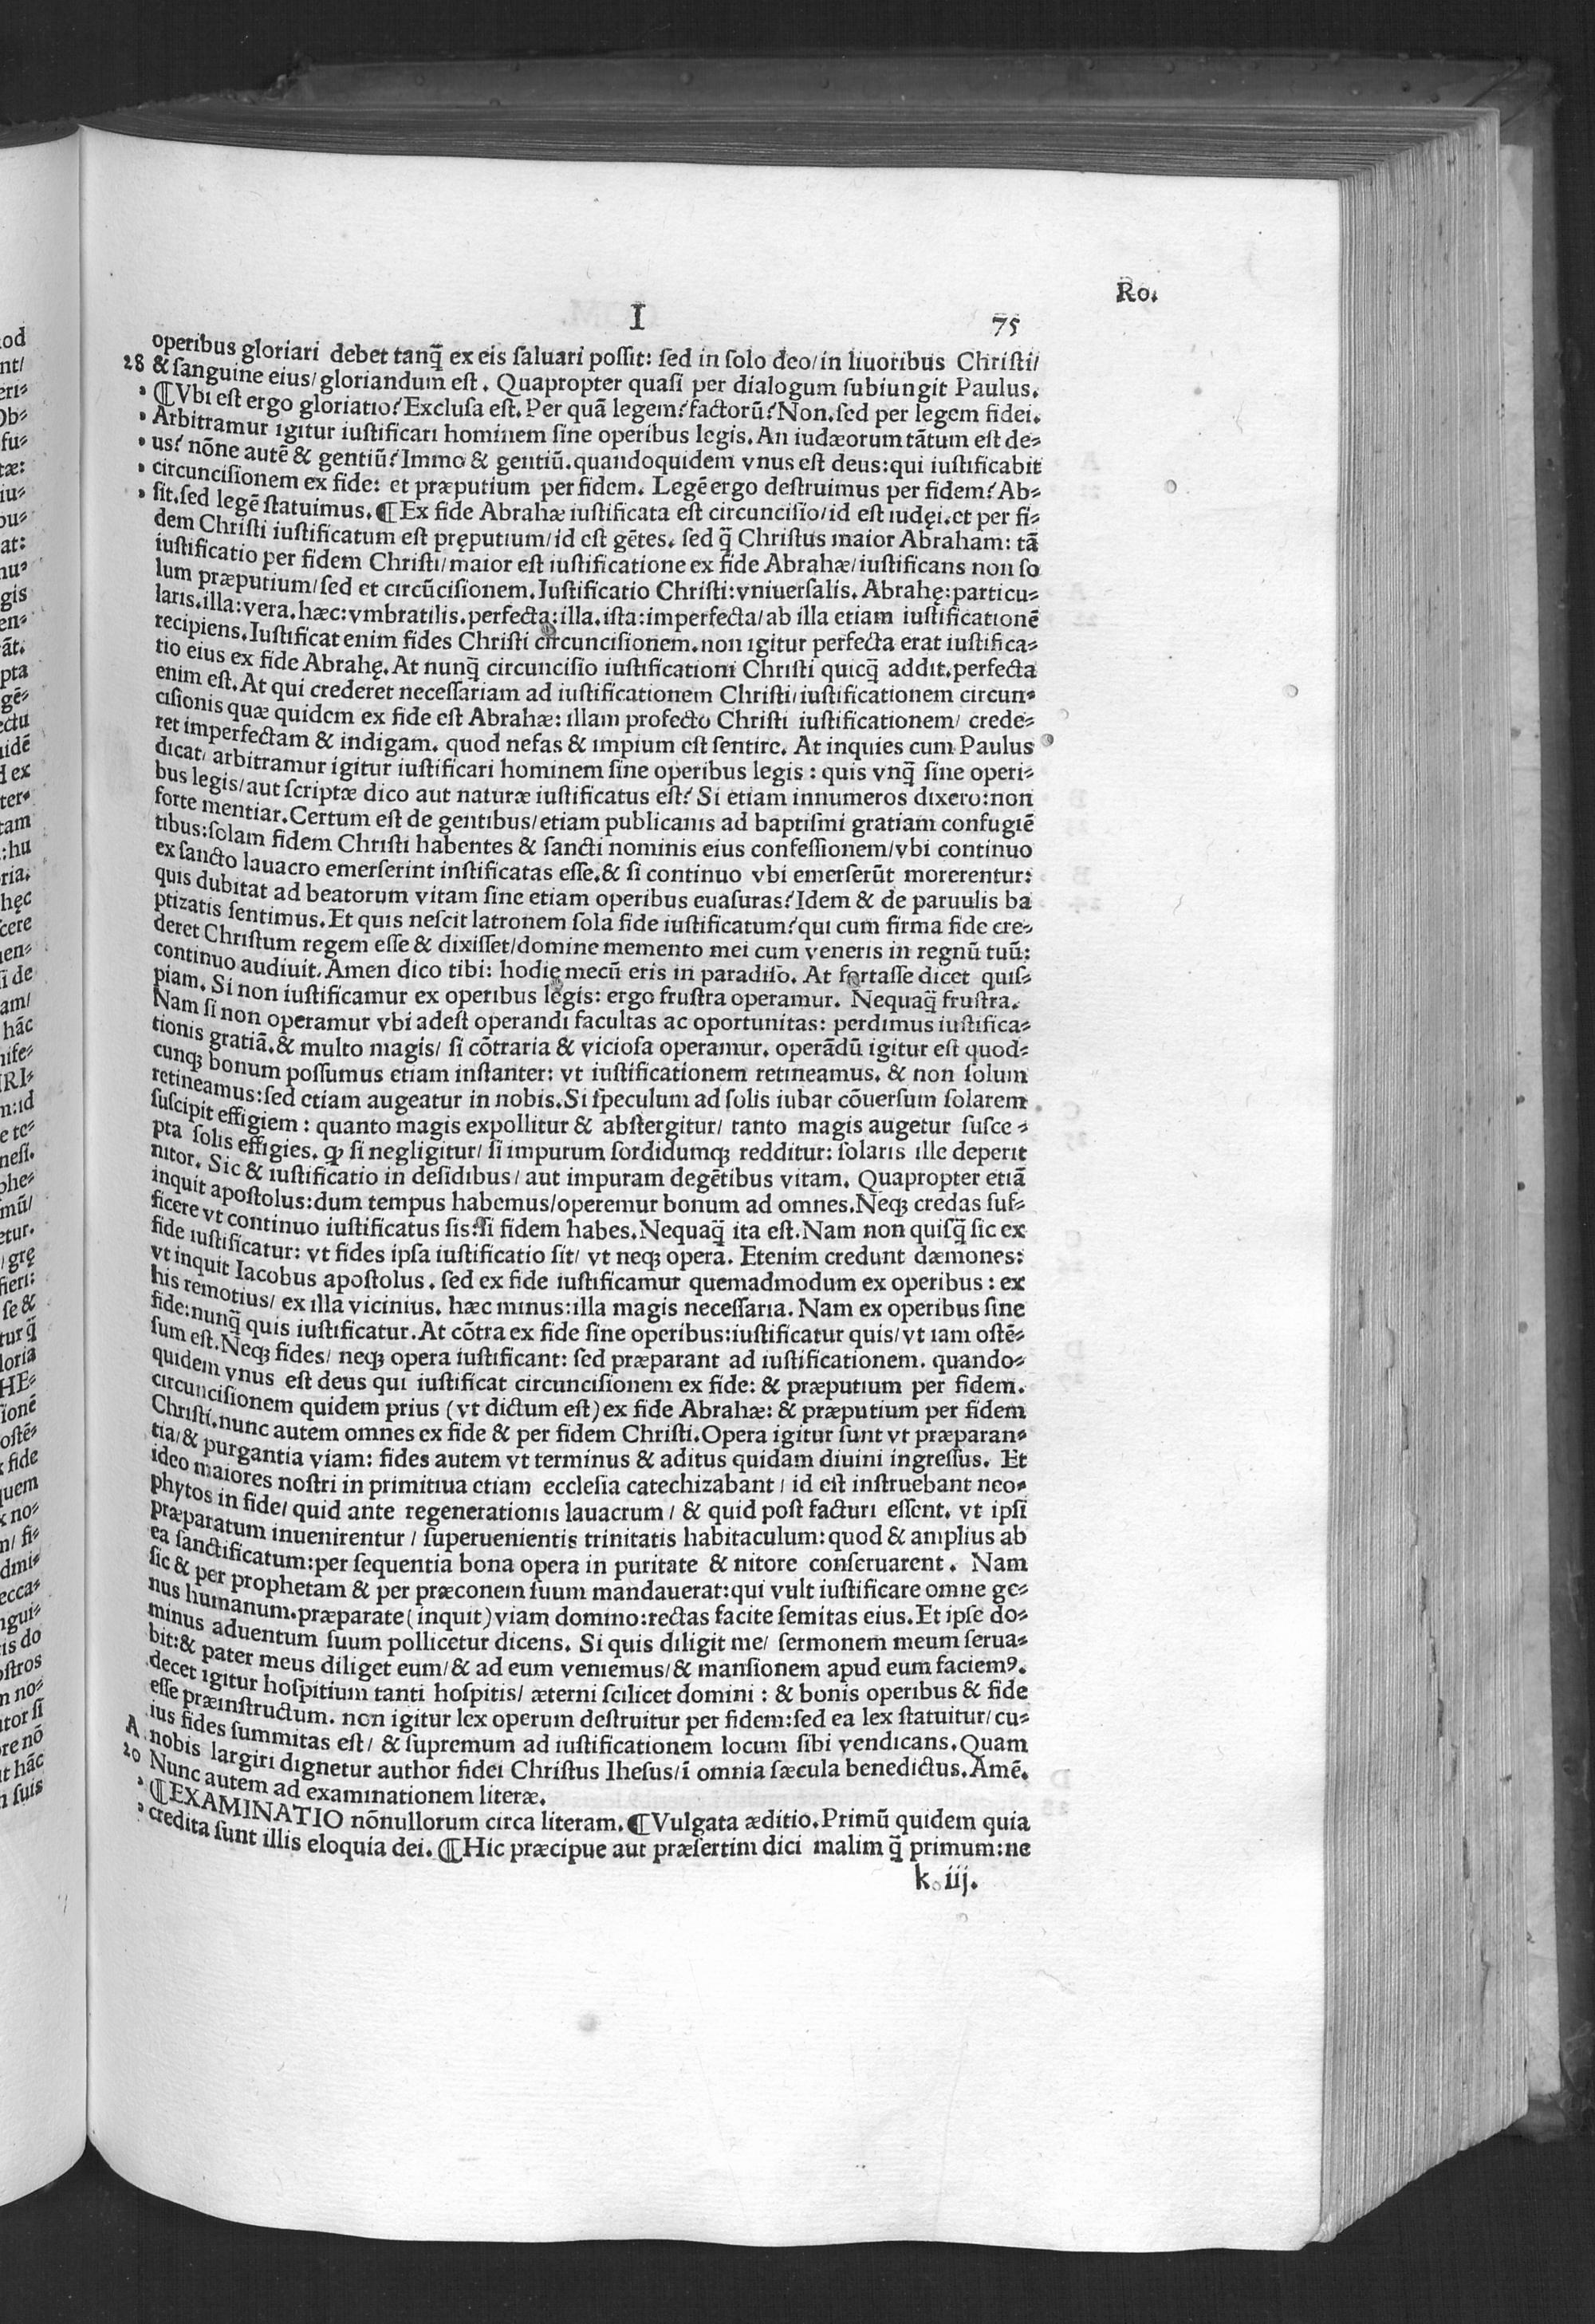 Ro.
I
75
operibus gloriari debet tanq̃ ex eis saluari possit: sed in solo deo/in liuoribus Christi/
28 & sanguine eius/gloriandum est. Quapropter quasi per dialogum subiungit Paulus.
¶Vbi est ergo gloriatio? Exclusa est. Per quã legem? factorũ? Non. sed per legem fidei.
Arbitramur igitur iustificari hominem sine operibus legis. An iudæorum tãtum est de-
us? nõne autē & gentiũ? Immo & gentiũ. quandoquidem vnus est deus: qui iustificabit
circuncisionem ex fide: et præputium per fidem. Legē ergo destruimus per fidem? Ab-
sit. sed legē statuimus. ¶Ex fide Abrahæ iustificata est circuncisio/id est iudęi. et per fi-
dem Christi iustificatum est pręputium/id est gētes. sed q̃ Christus maior Abraham: tã
iustificatio per fidem Christi/maior est iustificatione ex fide Abrahæ/iustificans non so
lum præputium/sed et circũcisionem. Iustificatio Christi: vniuersalis. Abrahę: particu-
laris. illa: vera. hæc: vmbratilis. perfecta: illa. ista: imperfecta/ab illa etiam iustificationē
recipiens. Iustificat enim fides Christi circuncisionem. non igitur perfecta erat iustifica-
tio eius ex fide Abrahę. At nunq̃ circuncisio iustificationi Christi quicq̃ addit. perfecta
enim est. At qui crederet necessariam ad iustificationem Christi/iustificationem circun-
cisionis quæ quidem ex fide est Abrahæ: illam profecto Christi iustificationem/ crede-
ret imperfectam & indigam. quod nefas & impium est sentire. At inquies cum Paulus
dicat/ arbitramur igitur iustificari hominem sine operibus legis: quis vnq̃ sine operi-
bus legis/aut scriptæ dico aut naturæ iustificatus est? Si etiam innumeros dixero: non
forte mentiar. Certum est de gentibus/etiam publicanis ad baptismi gratiam confugiē
tibus: solam fidem Christi habentes & sancti nominis eius confessionem/vbi continuo
ex sancto lauacro emerserint instificatas esse. & si continuo vbi emerserũt morerentur:
quis dubitat ad beatorum vitam sine etiam operibus euasuras? Idem & de paruulis ba
ptizatis sentimus. Et quis nescit latronem sola fide iustificatum? qui cum firma fide cre-
deret Christum regem esse & dixisset/domine memento mei cum veneris in regnũ tuũ:
continuo audiuit. Amen dico tibi: hodie mecũ eris in paradiso. At fortasse dicet quis-
piam. Si non iustificamur ex operibus legis: ergo frustra operamur. Nequaq̃ frustra.
Nam si non operamur vbi adest operandi facultas ac oportunitas: perdimus iustifica-
tionis gratiã. & multo magis/ si cõtraria & viciosa operamur. operãdũ igitur est quod-
cunqꝫ bonum possumus etiam instanter: vt iustificationem retineamus. & non solum
retineamus: sed etiam augeatur in nobis. Si speculum ad solis iubar cõuersum solarem
suscipit effigiem: quanto magis expollitur & abstergitur/ tanto magis augetur susce-
pta solis effigies. qꝫ si negligitur/ si impurum sordidumqꝫ redditur: solaris ille deperit
nitor. Sic & iustificatio in desidibus/ aut impuram degētibus vitam. Quapropter etiã
inquit apostolus: dum tempus habemus/operemur bonum ad omnes. Neqꝫ credas suf-
ficere vt continuo iustificatus sis: si fidem habes. Nequaq̃ ita est. Nam non quisq̃ sic ex
fide iustificatur: vt fides ipsa iustificatio sit/ vt neqꝫ opera. Etenim credunt dæmones:
vt inquit Iacobus apostolus. sed ex fide iustificamur quemadmodum ex operibus: ex
his remotius/ ex illa vicinius. hæc minus: illa magis necessaria. Nam ex operibus sine
fide: nunq̃ quis iustificatur. At cõtra ex fide sine operibus: iustificatur quis/vt iam ostē-
sum est. Neqꝫ fides/ neqꝫ opera iustificant: sed præparant ad iustificationem. quando-
quidem vnus est deus qui iustificat circuncisionem ex fide: & præputium per fidem.
circuncisionem quidem prius (vt dictum est) ex fide Abrahæ: & præputium per fidem
Christi. nunc autem omnes ex fide & per fidem Christi. Opera igitur sunt vt præparan-
tia/& purgantia viam: fides autem vt terminus & aditus quidam diuini ingressus. Et
ideo maiores nostri in primitiua etiam ecclesia catechizabant/ id est instruebant neo-
phytos in fide/ quid ante regenerationis lauacrum/ & quid post facturi essent. vt ipsi
præparatum inuenirentur/ superuenientis trinitatis habitaculum: quod & amplius ab
ea sanctificatum: per sequentia bona opera in puritate & nitore conseruarent. Nam
sic & per prophetam & per præconem suum mandauerat: qui vult iustificare omne ge-
nus humanum. præparate (inquit) viam domino: rectas facite semitas eius. Et ipse do-
minus aduentum suum pollicetur dicens. Si quis diligit me/ sermonem meum serua-
bit: & pater meus diliget eum/& ad eum veniemus/& mansionem apud eum faciemꝰ.
decet igitur hospitium tanti hospitis/ æterni scilicet domini: & bonis operibus & fide
esse præinstructum. non igitur lex operum destruitur per fidem: sed ea lex statuitur/cu-
ius fides summitas est/ & supremum ad iustificationem locum sibi vendicans. Quam
A nobis largiri dignetur author fidei Christus Ihesus/ĩ omnia sæcula benedictus. Amē.
20 Nunc autem ad examinationem literæ.
¶EXAMINATIO nõnullorum circa literam. ¶Vulgata æditio. Primũ quidem quia
credita sunt illis eloquia dei. ¶Hic præcipue aut præsertim dici malim q̃ primum: ne
k. iij.